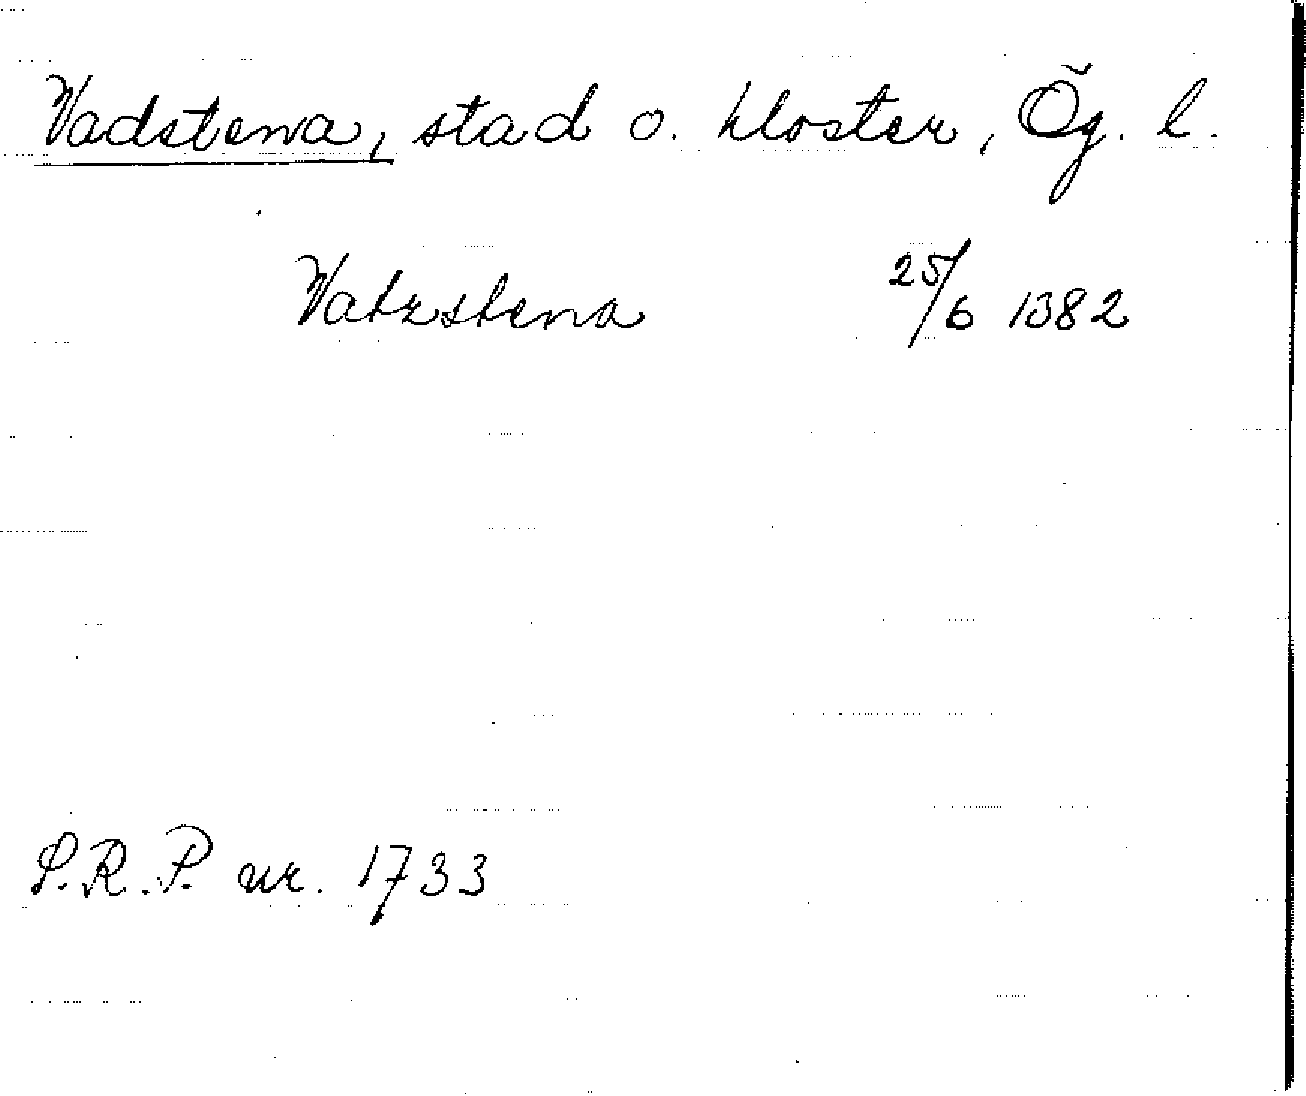 Vadstena, stad o. kloster, Ög. l.
Vatzstena 25/6 1382
S.R.P. nr. 1733